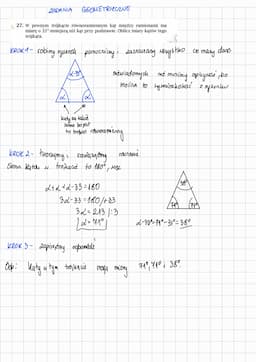 ZADANIA GEOMETRYCZNE
27. W pewnym trójkącie równoramiennym kąt między ramionami ma
miarę o 33° mniejszą niż kąt przy podstawie. Oblicz miary kątów tego
trójkąta.
KROK 1 - robimy rysunek pomocniczy i zaznaczamy wszystko co mamy dane
α-33°
α
α
kąty są takie
same bo jest
to trójkąt równoramienny
KROK 2 - tworzymy i rozwiązujemy równanie
Suma kątów w trójkącie to 180°, więc
α+α+α-33=180
3α-33=180/+33
3α=213/:3
α=71°
38°
71°
71°
α-33°=71°-33°=38°
KROK 3 - zapisujemy odpowiedź
Odp: Kąty w tym trójkącie mają miary 71°, 71° i 38°.